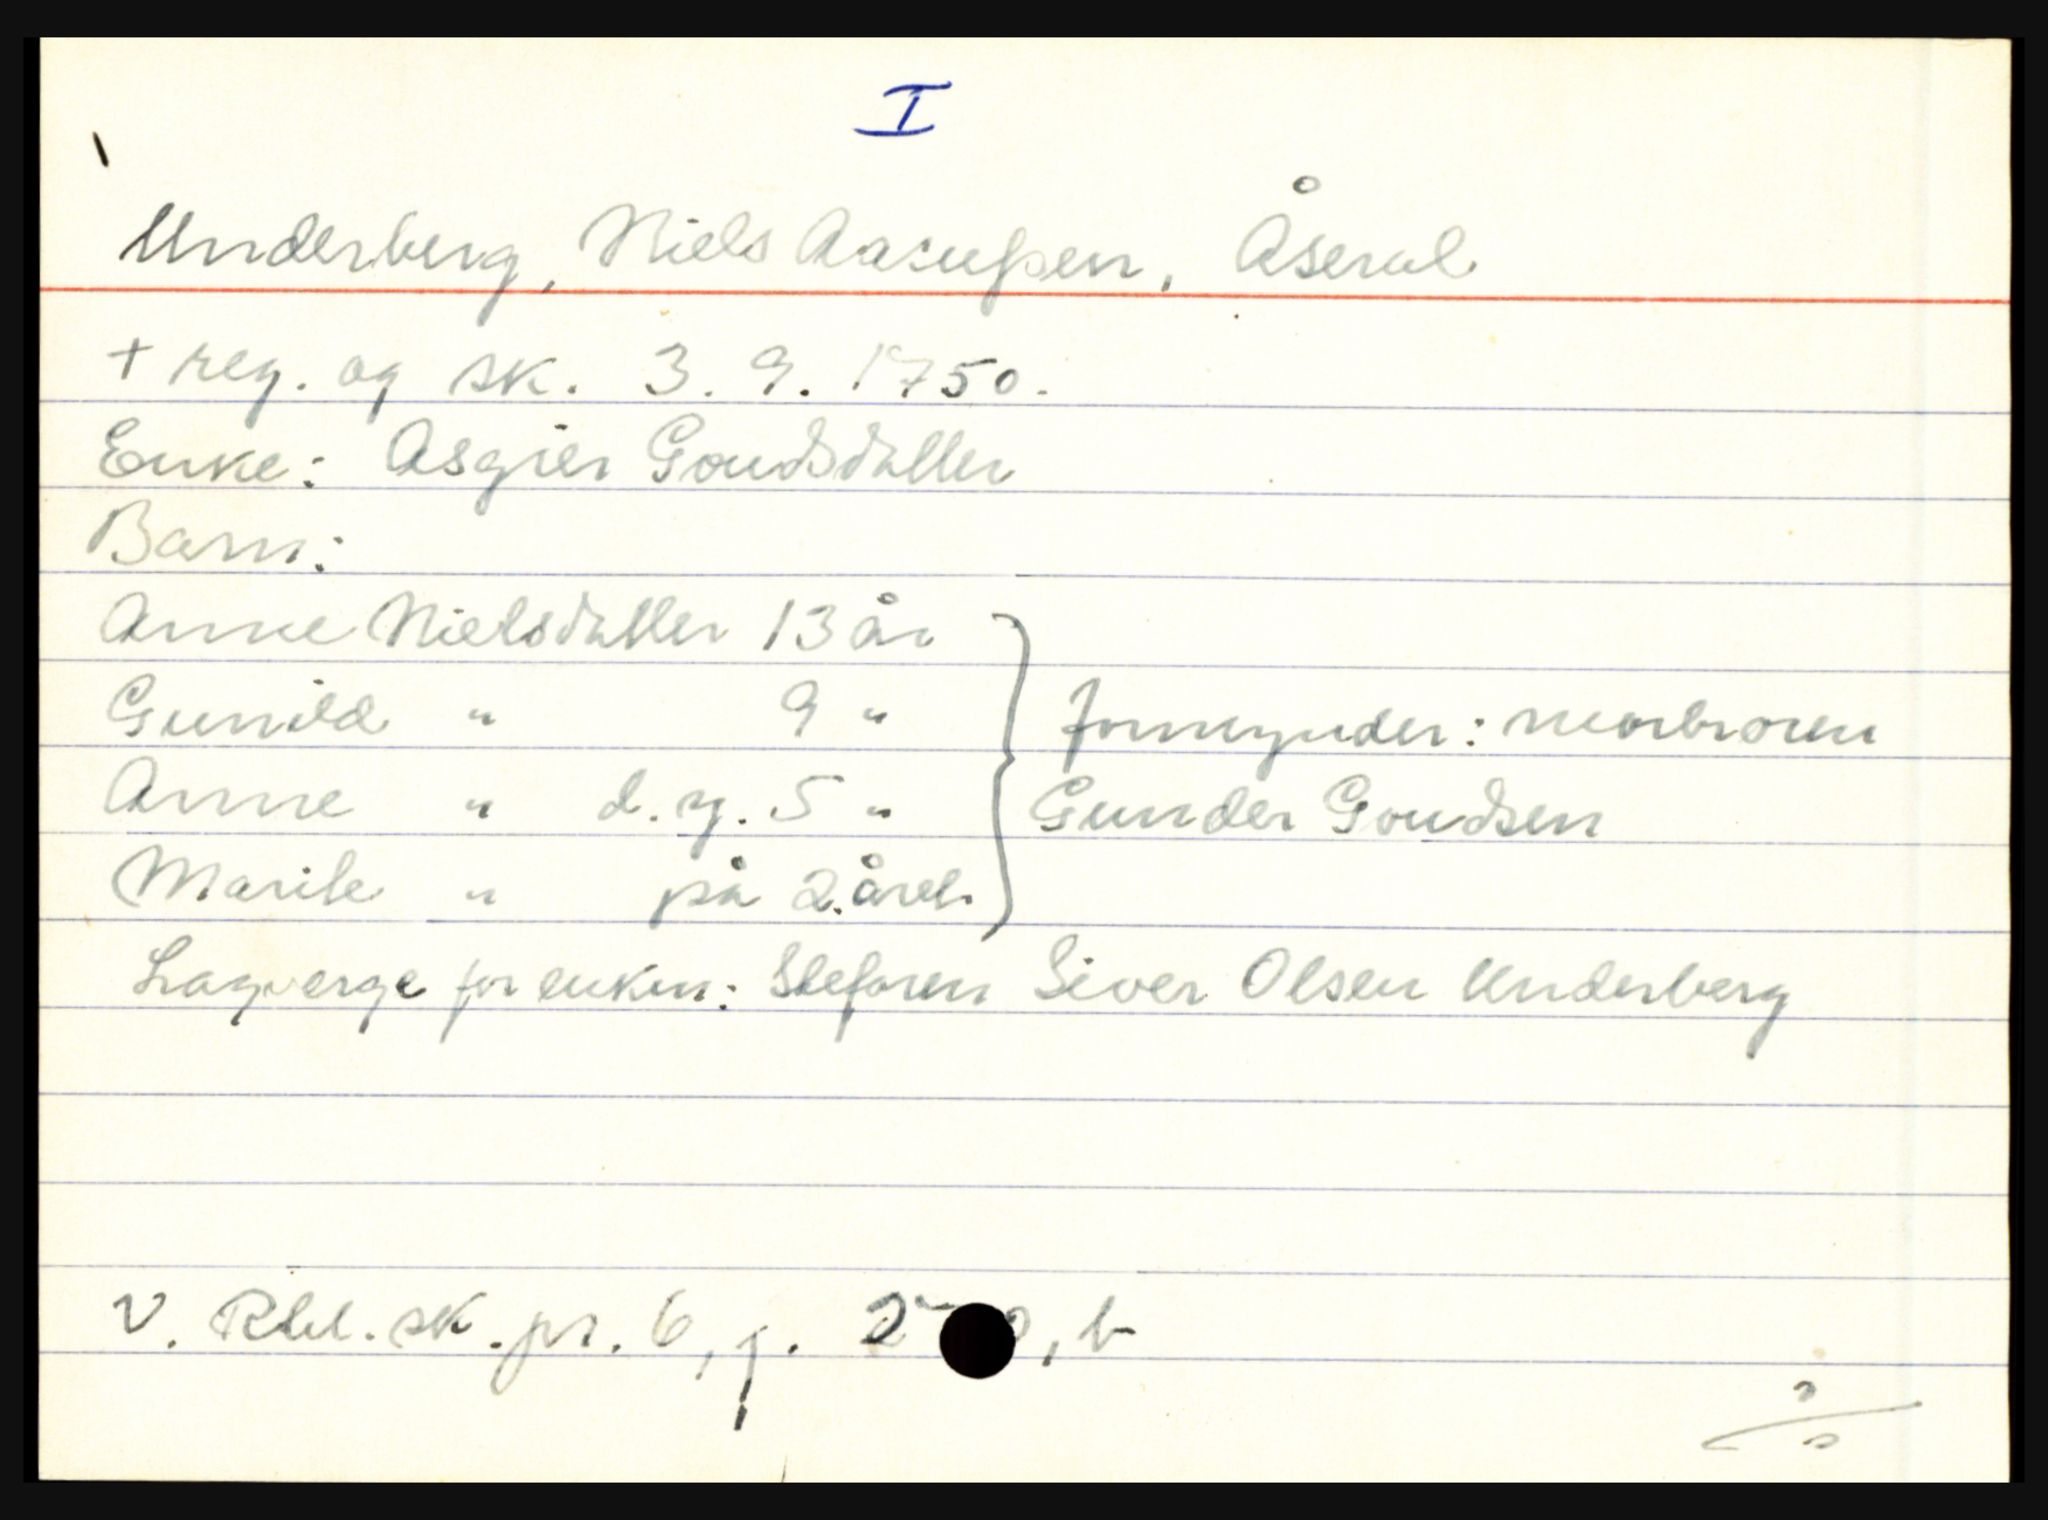 I
Underberg, Niels Aasulfsen, Åseral
+ reg. og sk. 3. 9. 1750.
Enke: Asgier Goudsdatter
Barn:
Anne Nielsdatter 13 år
Gunild " 9 "
Anne " d. y. 5 "
Marite " på 2. året.
formynder: morbroren
Gunder Goudsen
Lagverge for enken: Stefaren Siver Olsen Underberg
V. Rbl. sk. pr. 6, f. , b